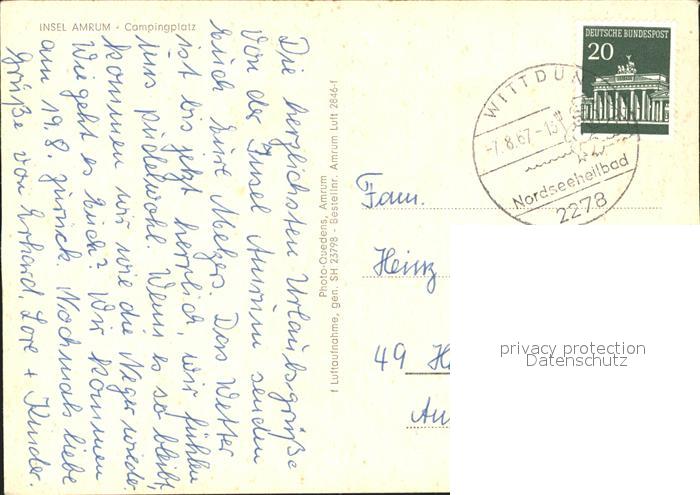 INSEL AMRUM · Campingplatz
Die herzlichsten Urlaubsgrüße
von der Insel Amrum senden
Euch Eure Metzers. Das Wetter
ist bis jetzt herrlich, wir fühlen
uns pudelwohl. Wenn es so bleibt,
kommen wir wie die Neger wieder.
Wie geht es Euch? Wir kommen
am 19.8. zurück. Nochmals liebe
Grüße von Erhard, Lore + Kinder.
Photo-Quedens, Amrum
† Luftaufnahme, gen. SH 23798 · Bestellnr. Amrum Luft 2846-f
DEUTSCHE BUNDESPOST
20
WITTDÜN
-7.8.67-15
Nordseeheilbad
2278
Fam.
Heinz
49 H
privacy protection
Datenschutz